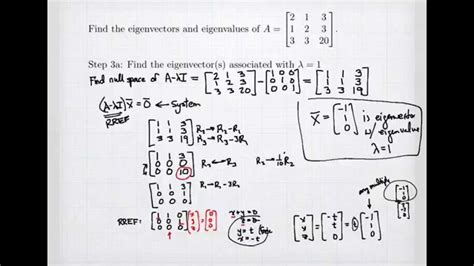 Find the eigenvectors and eigenvalues of A = [2 1 3; 1 2 3; 3 3 20].
Step 3a: Find the eigenvector(s) associated with λ = 1
Find null space of A-λI = [2 1 3; 1 2 3; 3 3 20] - [1 0 0; 0 1 0; 0 0 1] = [1 1 3; 1 1 3; 3 3 19]
(A-λI) x̄ = 0̄ ← System
RREF
[1 1 3; 1 1 3; 3 3 19] R₂→R₂-R₁
R₃→R₃-3R₁
[1 1 3; 0 0 0; 0 0 10] R₂↔R₃ R₂→1/10R₂
[1 1 3; 0 0 1; 0 0 0] R₁→R₁-3R₂
RREF: [1 1 0; 0 0 1; 0 0 0] [x; y; z] = [0; 0; 0]
x+y=0
z=0
y=t
x=-t
[x; y; z] = [-t; t; 0] = t [-1; 1; 0]
x̄ = [-1; 1; 0] is
eigenvector
w/ eigenvalue
λ=1
any multiple
[-1; 1; 0]